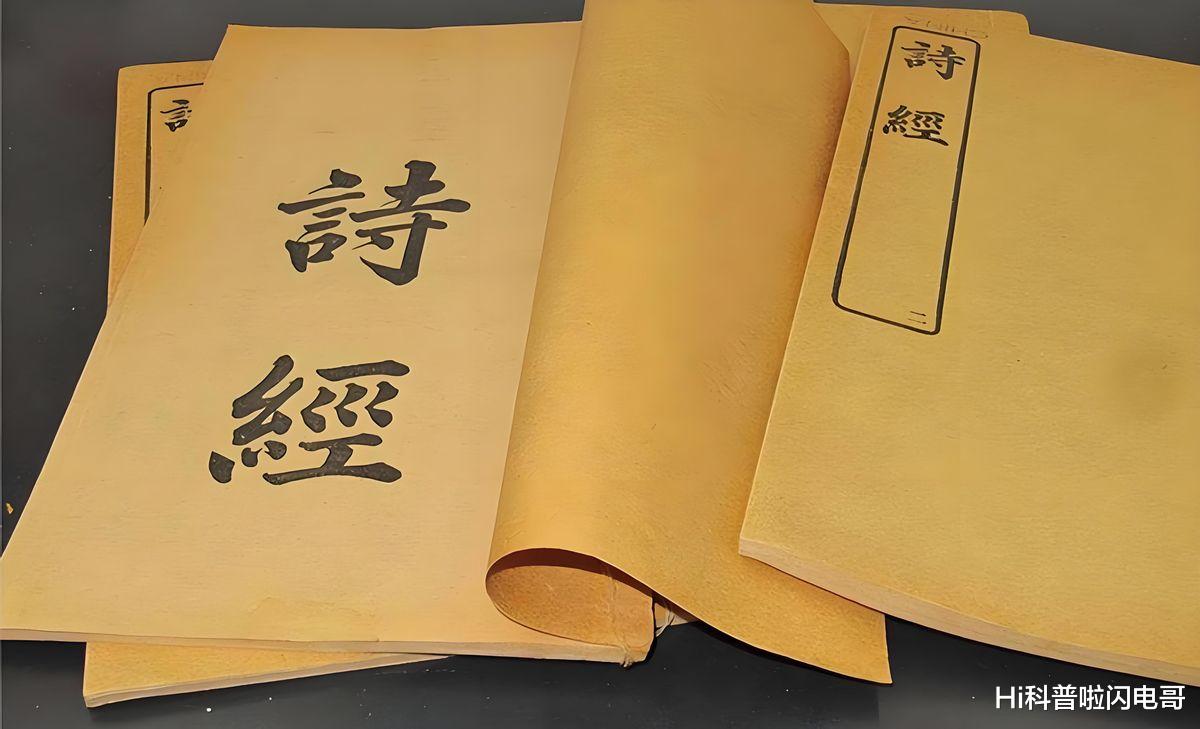 詩
詩
經
詩
經
二
Hi科普啦闪电哥